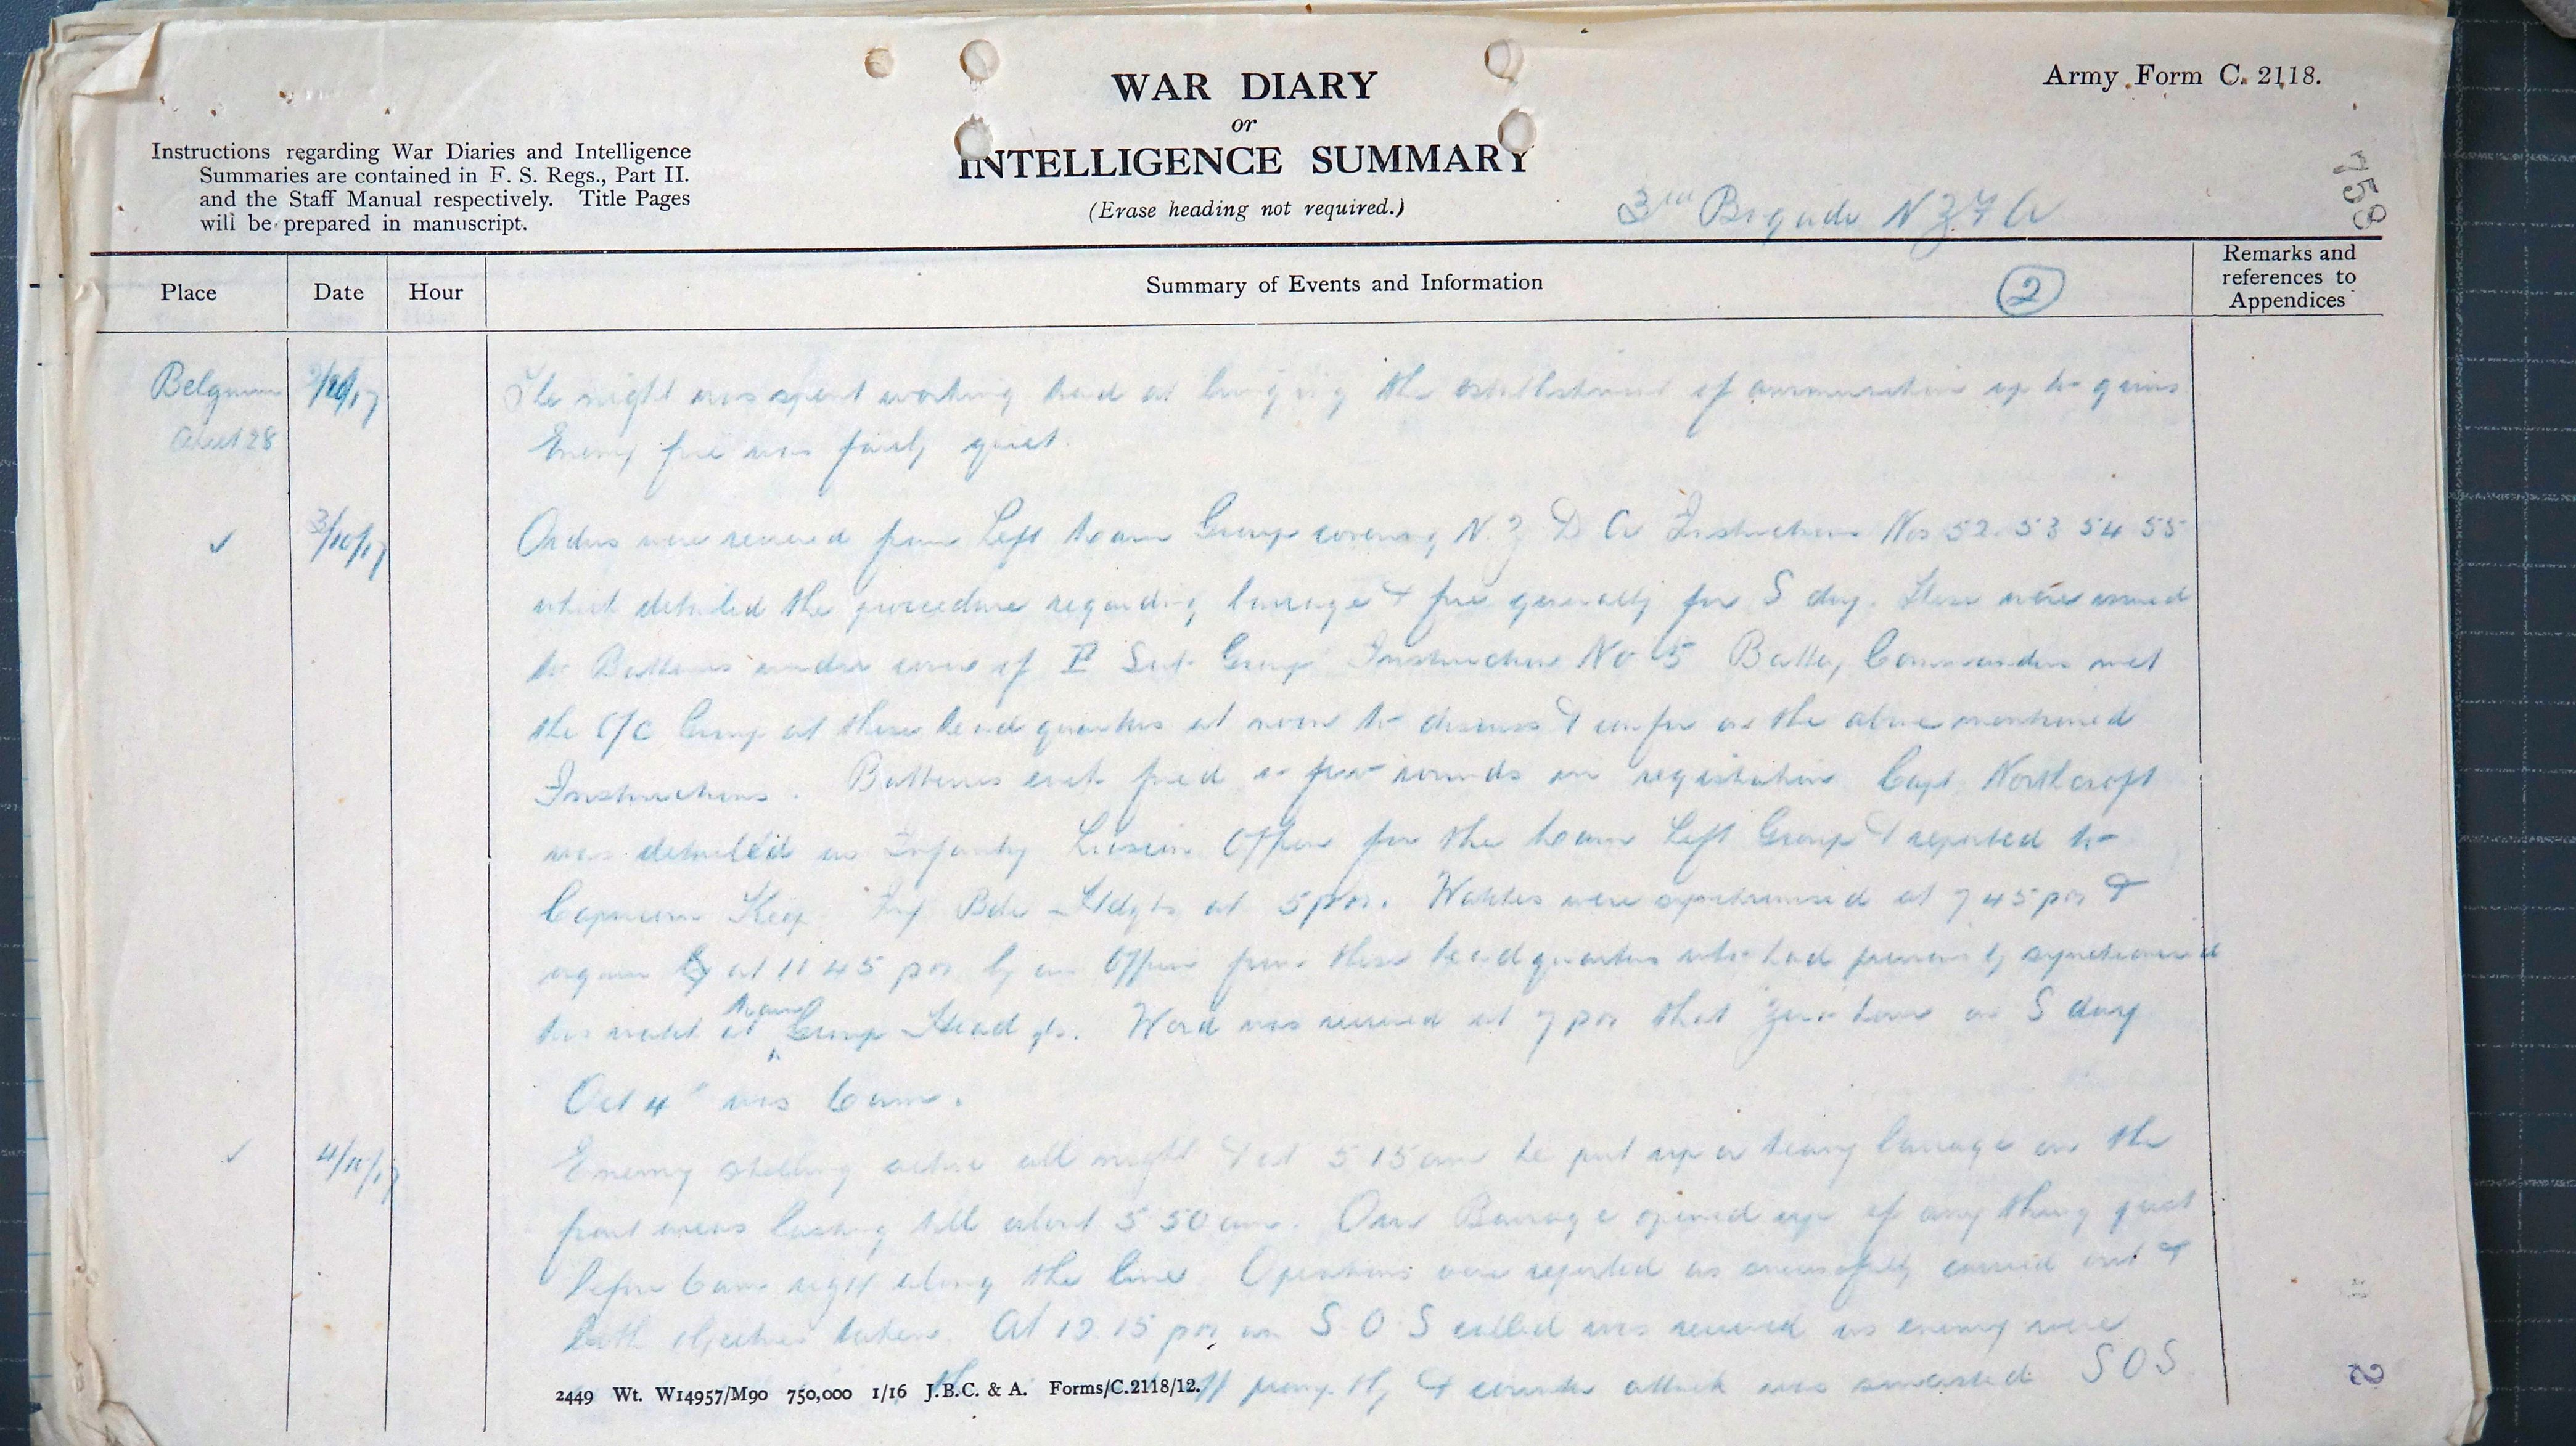 WAR DIARY
or
INTELLIGENCE SUMMARY
(Erase heading not required.)
Army Form C. 2118.
Instructions regarding War Diaries and Intelligence
Summaries are contained in F. S. Regs., Part II.
and the Staff Manual respectively. Title Pages
will be prepared in manuscript.
3rd Brigade N Z F A
758
Place
Date
Hour
Summary of Events and Information
2
Remarks and
references to
Appendices
Belgium 2/10/17 The night was spent working hard at bringing the establishment of ammunition up to guns
28 Enemy fire was fairly quiet.
✓ 3/10/17 Orders were received from Left Group covering N.Z D A Instructions Nos 52. 53 54 55
which detailed the procedure regarding barrage & fire generally for S day. These were issued
to Batteries under cover of Sub Group Instructions No 5 Battery Commanders met
the O/C Group at these headquarters at noon to discuss & confer on the above mentioned
Instructions. Batteries each fired a few rounds in registration Capt Northcroft
was detailed as Infantry Liaison Officer for the Left Group & reported to
Capricorn Keep Inf Bde Hdqts at 5 pm. Watches were synchronised at 7 45 pm &
again at 11 45 pm by an Officer from these headquarters who had previously synchronised
his watch at Group Head qts. Word was received at 7 pm that Zero hour on S day
Oct 4" was 6 am.
✓ 4/10/17 Enemy shelling active all night & at 5 15 am he put up a heavy barrage on the
front areas lasting till about 5 50 am. Our Barrage opened up if any thing just
before 6 am right along the line Operations were reported as successfully carried out &
both objectives taken. At 12. 15 pm an S O S called was received as enemy were
promptly & counter attack was SOS
2449 Wt. W14957/M90 750,000 1/16 J.B.C. & A. Forms/C.2118/12.
2